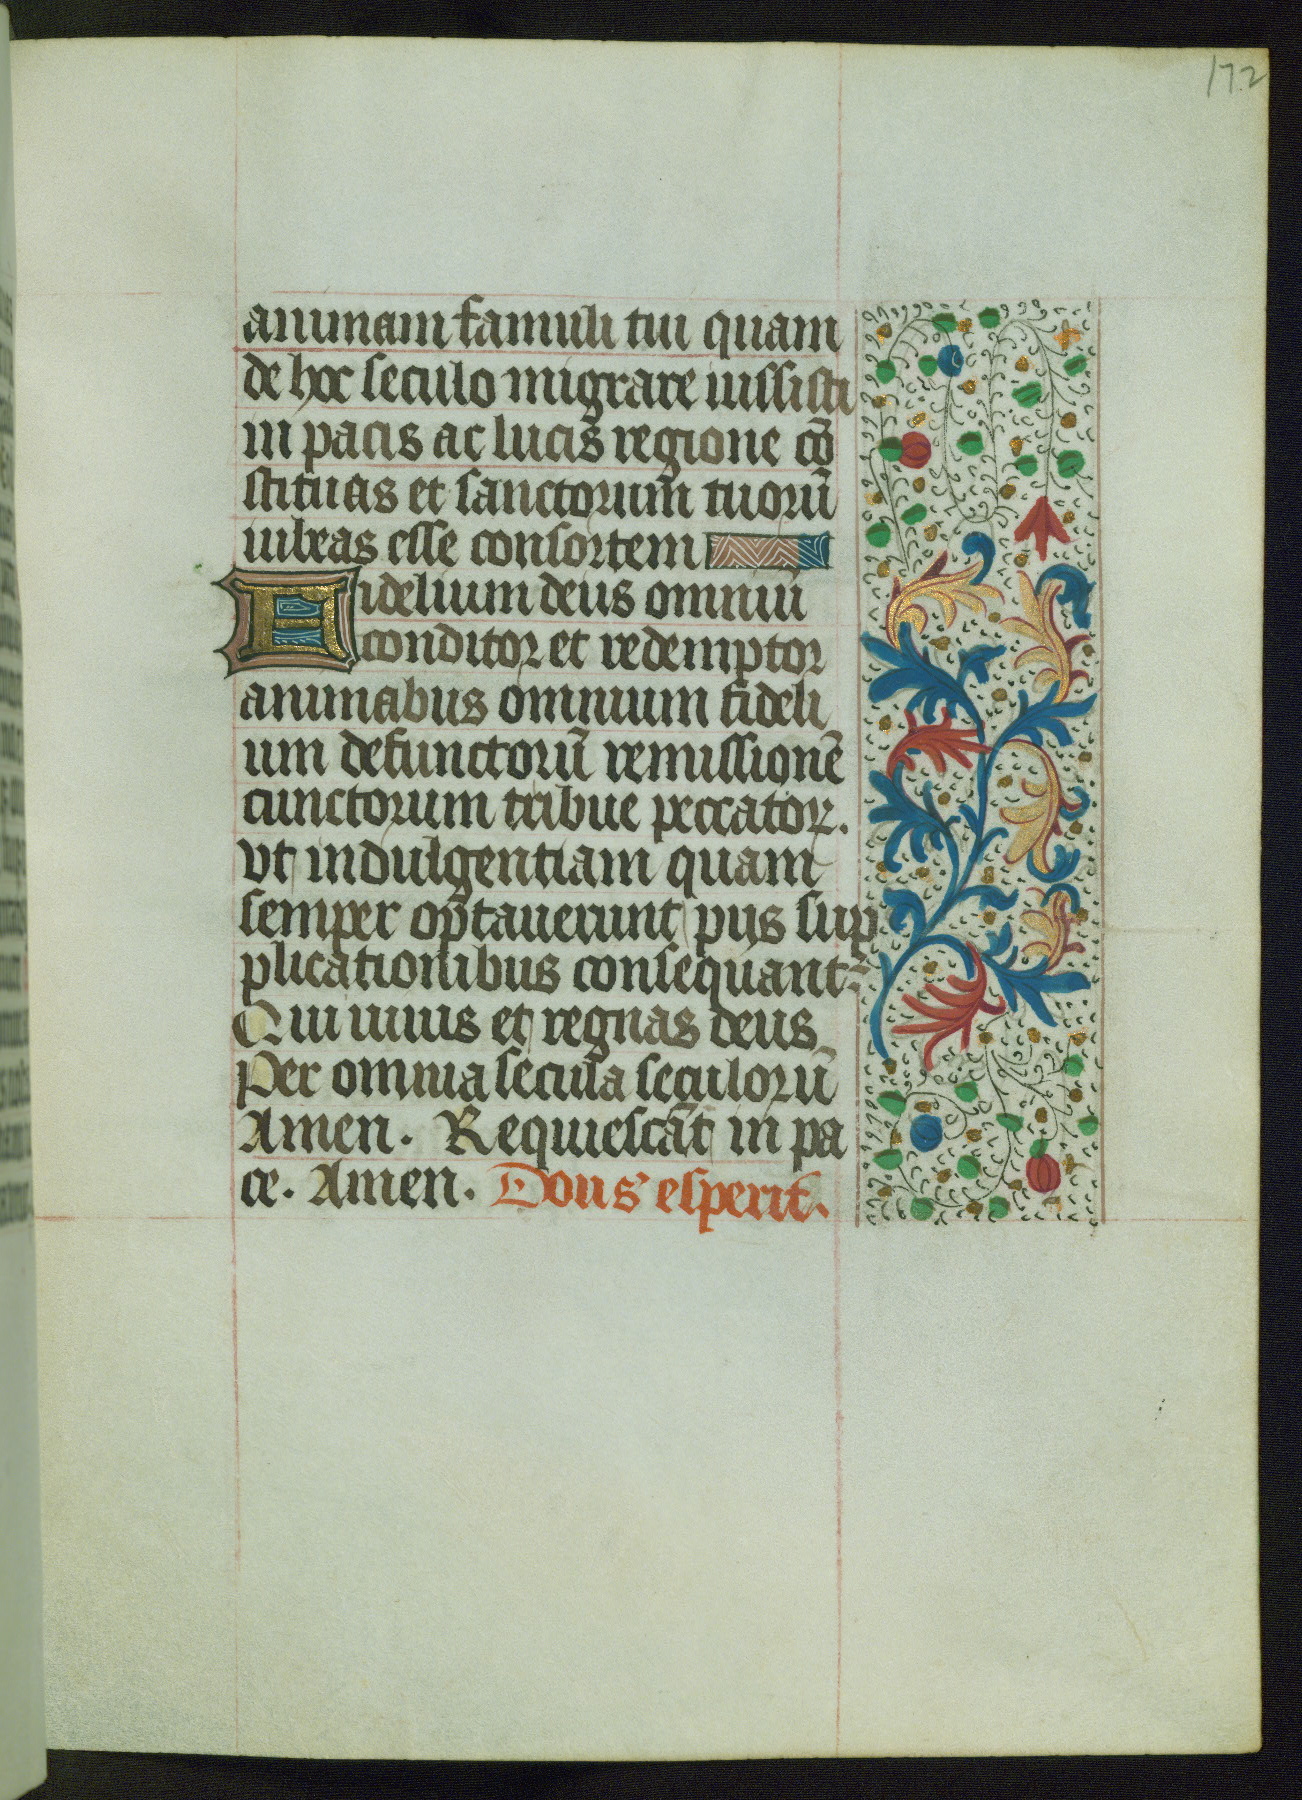 172
animam famuli tui quam
de hoc seculo migrare iussisti
in pacis ac lucis regione cō
stituas et sanctorum tuorū
iubeas esse consortem
Fidelium deus omniū
conditor et redemptor
animabus omnium fideli
um defunctorū remissionē
cunctorum tribue peccator.
vt indulgentiam quam
semper optauerunt pijs sup
plicationibus consequant᷑
Qui uiuis et regnas deus
Per omnia secula seculorū
Amen. Requiescāt in pa
ce. Amen. Dou sʼ esperit.